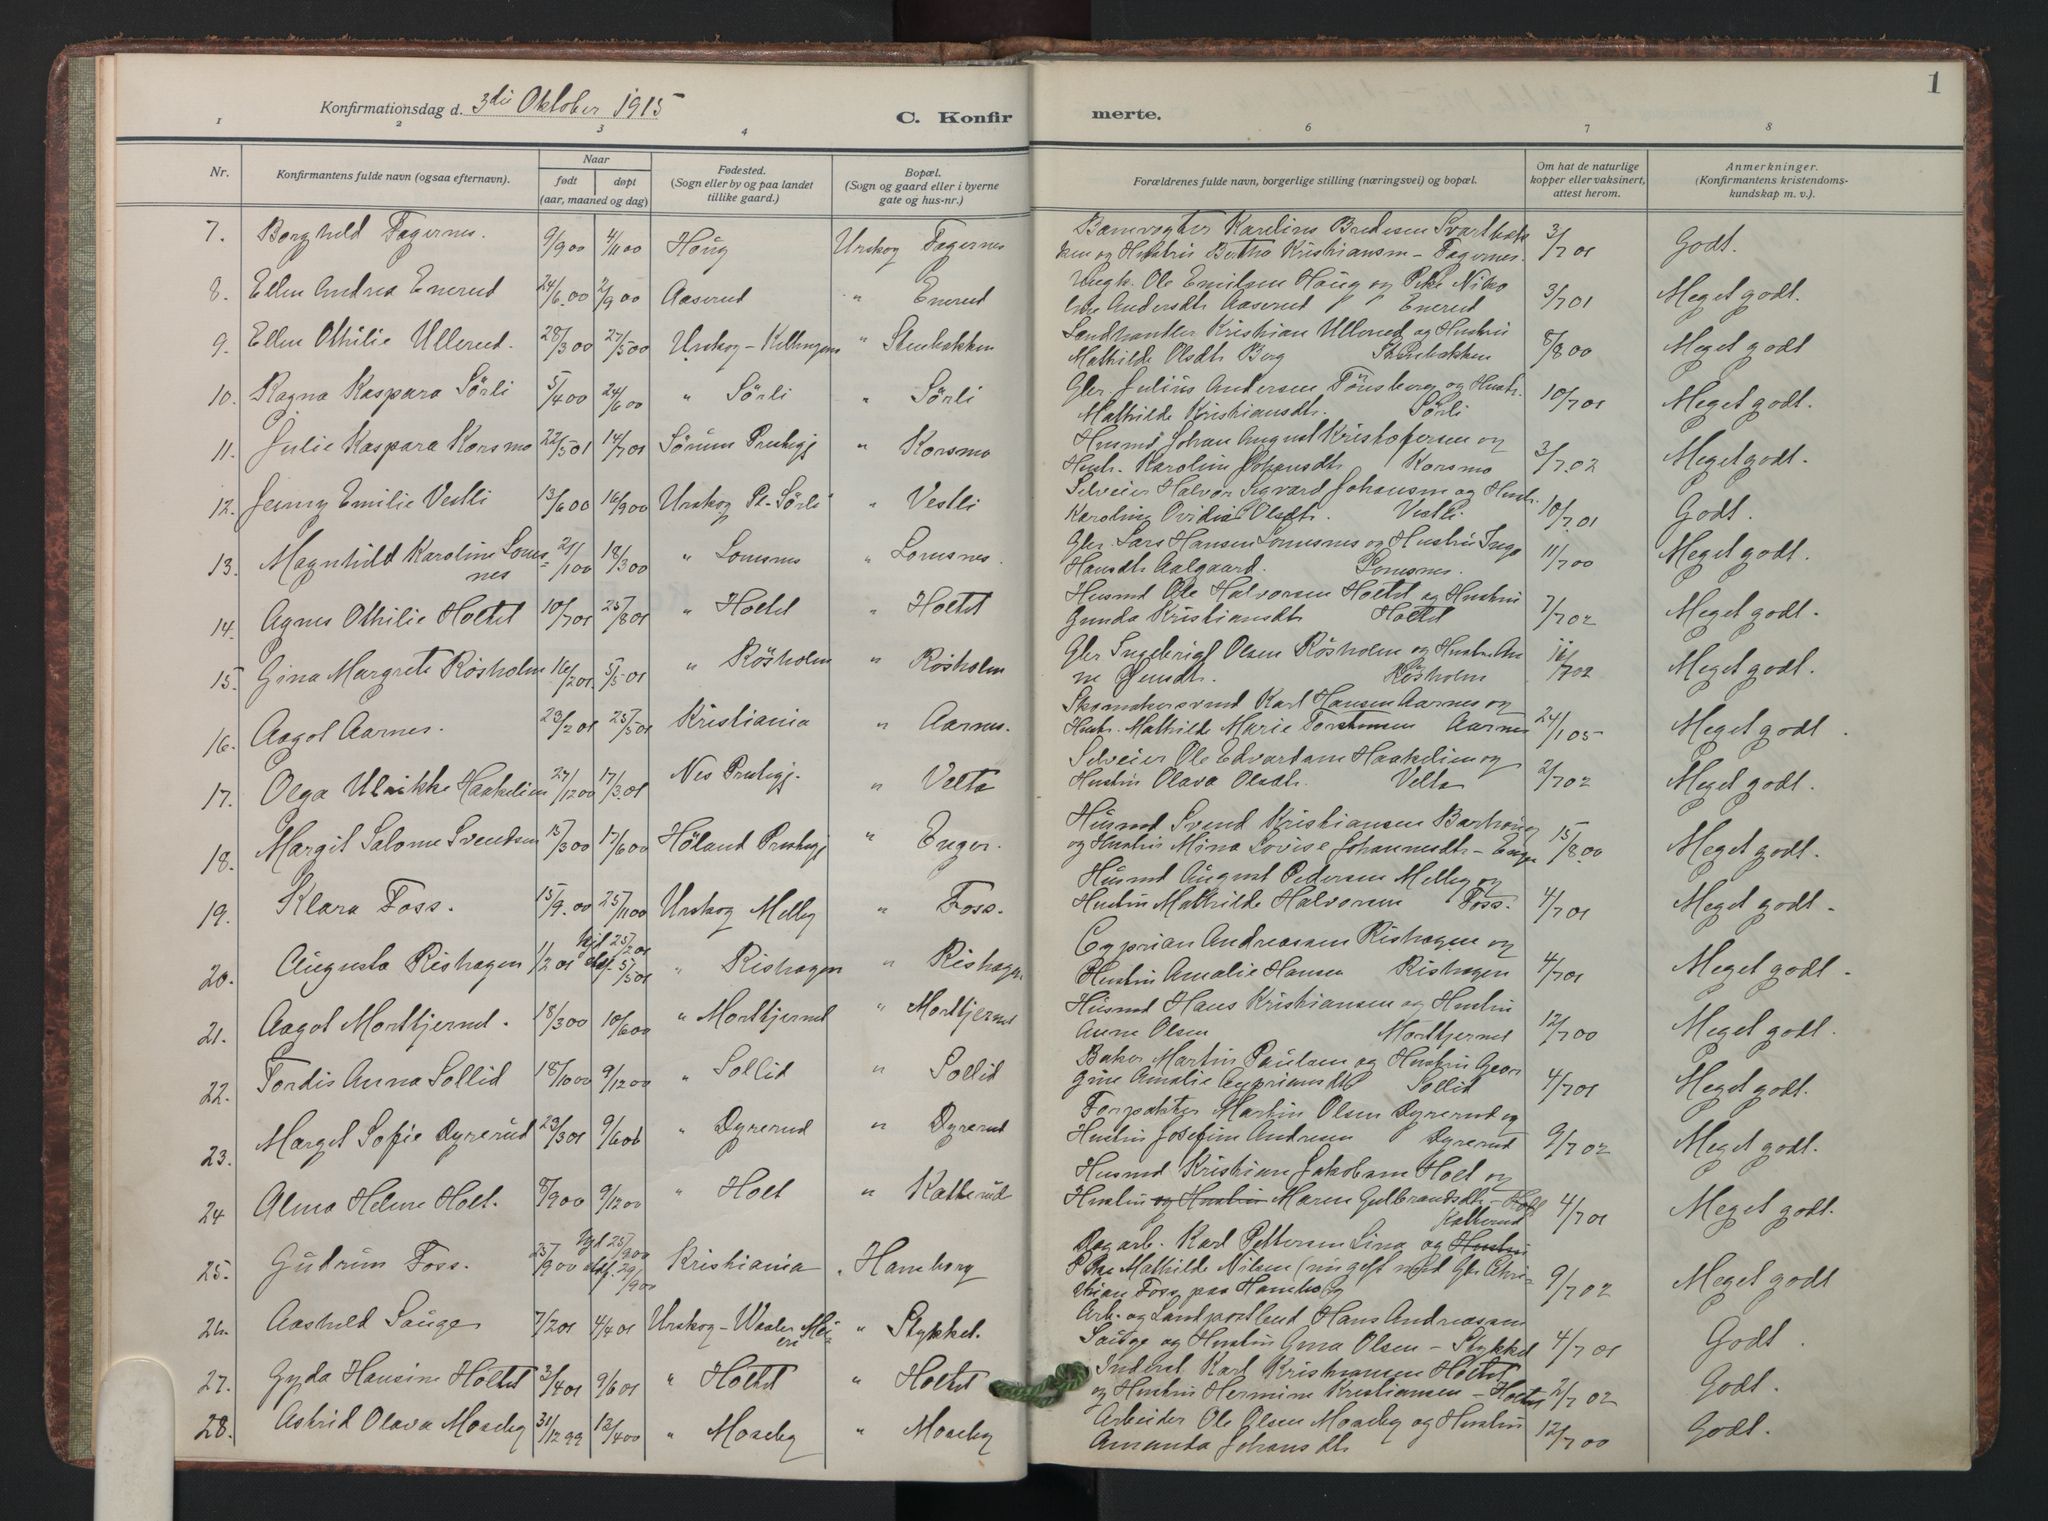 1
Konfirmationsdag d. 3die Oktober 1915
C. Konfirmerte.
1 2 3 4 6 7 8
Nr.
Konfirmantens fulde navn (ogsaa efternavn).
Naar
født døpt
(aar, maaned og dag)
Fødested.
(Sogn eller by og paa landet
tillike gaard.)
Bopæl.
(Sogn og gaard eller i byerne
gate og hus-nr.)
Forældrenes fulde navn, borgerlige stilling (næringsvei) og bopæl.
Om hat de naturlige
kopper eller vaksinert,
attest herom.
Anmerkninger.
(Konfirmantens kristendoms-
kundskap m. v.).
7. Borghild Fagernes. 9/9 00 4/11 00 Houg Urskog Fagernes 3/7 01 Godt.
og Hustru Bertha Kristiansen - Fagernes.
8. Ellen Andrea Enerud 24/6 00 2/9 00 Aaserud " Enerud Ungk. Ole Emilsen Houg og Pike Niko
line Andersdtr Aaserud Enerud 3/7 01 Meget godt.
9. Ellen Othilie Ullerud. 28/3 00 27/5 00 Urskog - " Stenbakken Landhandler Kristian Ullerud og Hustru
Mathilde Olsdtr Berg Stenbakken 8/8 00 Meget godt
10. Ragna Kaspara Sörli 5/4 00 24/6 00 " Sörli " Sörli Gbr. Julius Andersen Tönsberg og Hustr.
Mathilde Kristiansdtr. Sörli 10/7 01 Meget godt.
11. Julie Kaspara Korsmo 22/5 01 14/7 01 Sörum Prestegj " Korsmo Husmd Johan August Kristofersen og
Hustr. Karoline Johansdtr Korsmo 3/7 02 Meget godt.
12. Jenny Emilie Vestli 13/6 00 16/9 00 Urskog Pl. Sörli " Vestli Selveier Halvor Sigvard Johansen og Hustr.
Karoline Ovidia Olsdtr. Vestli 10/7 01 Godt.
13. Magnhild Karoline Lomsnes 21/1 00 18/3 00 " Lomsnes " Lomsnes. Gbr. Lars Hansen Lomsnes og Hustru Inga
Hansdtr Aalgaard. Lomsnes. 11/7 00 Meget godt.
14. Agnes Othilie Holtet 10/7 01 25/8 01 " Holtet " Holtet Husmd Ole Halvorsen Holtet og Hustru
Gunda Kristiansdtr Holtet 7/7 02 Meget godt.
15. Gina Margrete Rösholm 16/2 01 5/5 01 " Rösholm " Rösholm Gbr Ingebrigt Olsen Rösholm og Hustru An
ne Jensdtr. Rösholm 11/7 02 Meget godt.
16. Aagot Aarnes. 23/2 01 25/5 01 Kristiania " Aarnes. Skomakersvend Karl Hansen Aarnes og
Hustr. Mathilde Marie Torstensen Aarnes 24/1 05 Meget godt.
17. Olga Ulrikke Haakelien 27/12 00 17/3 01 Nes Prestegj. " Velta Selveier Ole Edvardsen Haakelien og
Hustru Olava Olsdtr. Velta 2/7 02 Meget godt.
18. Margit Salome Svendsen 15/3 00 17/6 00 Höland Prestegj " Enger. Husmd Svend Kristiansen
og Hustru Mina Lovise Johannesdtr - Enger 15/8 00 Meget godt.
19. Klara Foss. 15/9 00 25/11 00 Urskog Melby " Foss. Husmd August Pedersen Melby og
Hustru Mathilde Halvorsen Foss. 4/7 01 Meget godt.
20. Augusta Rishagen 1/2 01 25/2 01 5/5 01 " Rishagen " Rishagen Cyprian Andreassen Rishagen og
Hustru Amalie Hansen Rishagen 4/7 01 Meget godt.
21. Aagot Mortkjernet. 18/3 00 10/6 00 " Mortkjernet " Mortkjernet Husmd Hans Kristiansen og Hustru
Anne Olsen Mortkjernet 12/7 00 Meget godt.
22. Tordis Anna Sollid 18/10 00 9/12 00 " Sollid " Sollid Baker Martin Paulsen og Hustru Geor
gine Amalie Cypriansdtr Sollid 4/7 01 Meget godt.
23. Marget Sofie Dyrerud 23/3 01 9/6 01 " Dyrerud " Dyrerud Forpakter Martin Olsen Dyrerud og
Hustru Josefine Andresen Dyrerud 9/7 02 Meget godt.
24 Alma Helene Holt. 8/9 00 9/12 00 " Holt " Katterud Husmd Kristian Jakobsen Holt og
Hustru og Hustru Maren Gulbrandsdtr - Holt
Katterud 4/7 01 Meget godt.
25. Gudrun Foss. 25/9 00 25/9 00 Kristiania " Hamborg Dagarb. Karl Pettersen Lina og Hustru
Pike Mathilde Nilsen (nu gift med Gbr. Chri-
stian Foss paa Hamborg 9/7 02 Meget godt
26. Aashild Sauge 7/2 01 4/4 01 Urskog - Waaler Meieri " Stykket. Arb. og Landpostbud Hans Andreassen
Sauge og Hustru Olsen - Stykket 4/7 01 Godt
27. Gyda Hansine Holtet 3/4 01 9/6 01 " Holtet " Holtet Inderst Karl Kristiansen Holtet
og Hustru Hermine Kristiansen - Holtet 2/7 02 Godt.
28. Astrid Olava Moseby 31/12 99 13/4 00 " Moseby " Moseby Arbeider Ole Olsen Moseby og Hustru
Amanda Johansdtr 12/7 00 Godt.